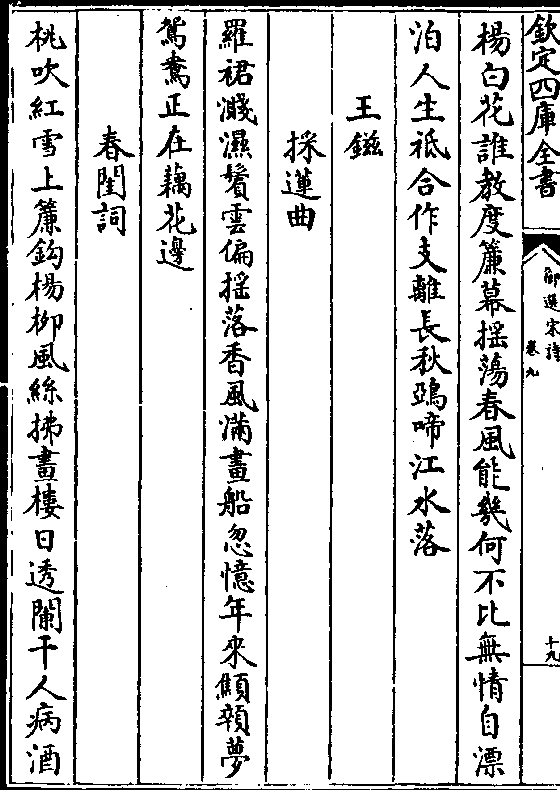 欽定四庫全書
御選宋詩
卷九
十九
楊白花誰教度簾幕揺蕩春風能幾何不比無情自漂
泊人生祗合作支離長秋鵶啼江水落
王鎡
採蓮曲
羅裙濺濕鬢雲偏揺落香風滿畫船忽憶年來顛顇夢
鴛鴦正在藕花邊
春閨詞
桃吹紅雪上簾鈎楊栁風絲拂畫樓日透闌干人病酒